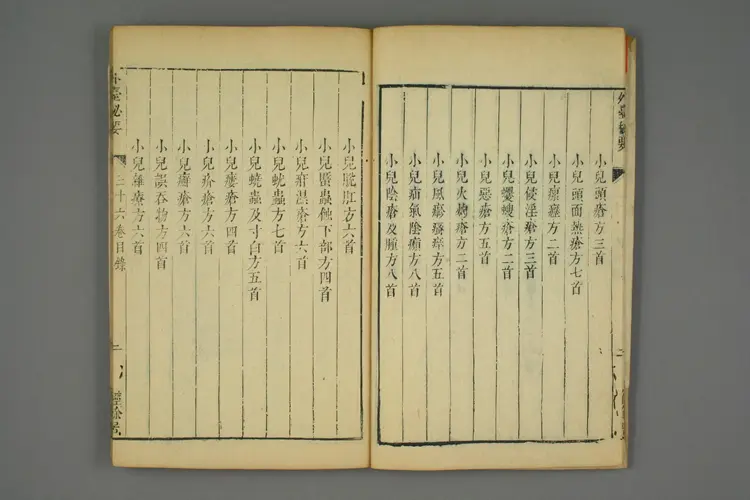 小兒頭瘡方三首
小兒頭面熱瘡方七首
小兒瘰癧方二首
小兒侵淫瘡方三首
小兒蠼螋瘡方二首
小兒惡瘡方五首
小兒火灼瘡方二首
小兒風瘮瘙痒方五首
小兒疝氣陰㿗方八首
小兒陰瘡及腫方八首
小兒脫肛方六首
小兒䘌蟲蝕下部方四首
小兒疳濕瘡方六首
小兒蚘蟲方七首
小兒蟯蟲及寸白方五首
小兒瘻瘡方四首
小兒疥瘡方六首
小兒癬瘡方六首
小兒誤吞物方四首
小兒雜療方六首
外臺秘要
三十六卷目錄
二
經餘居